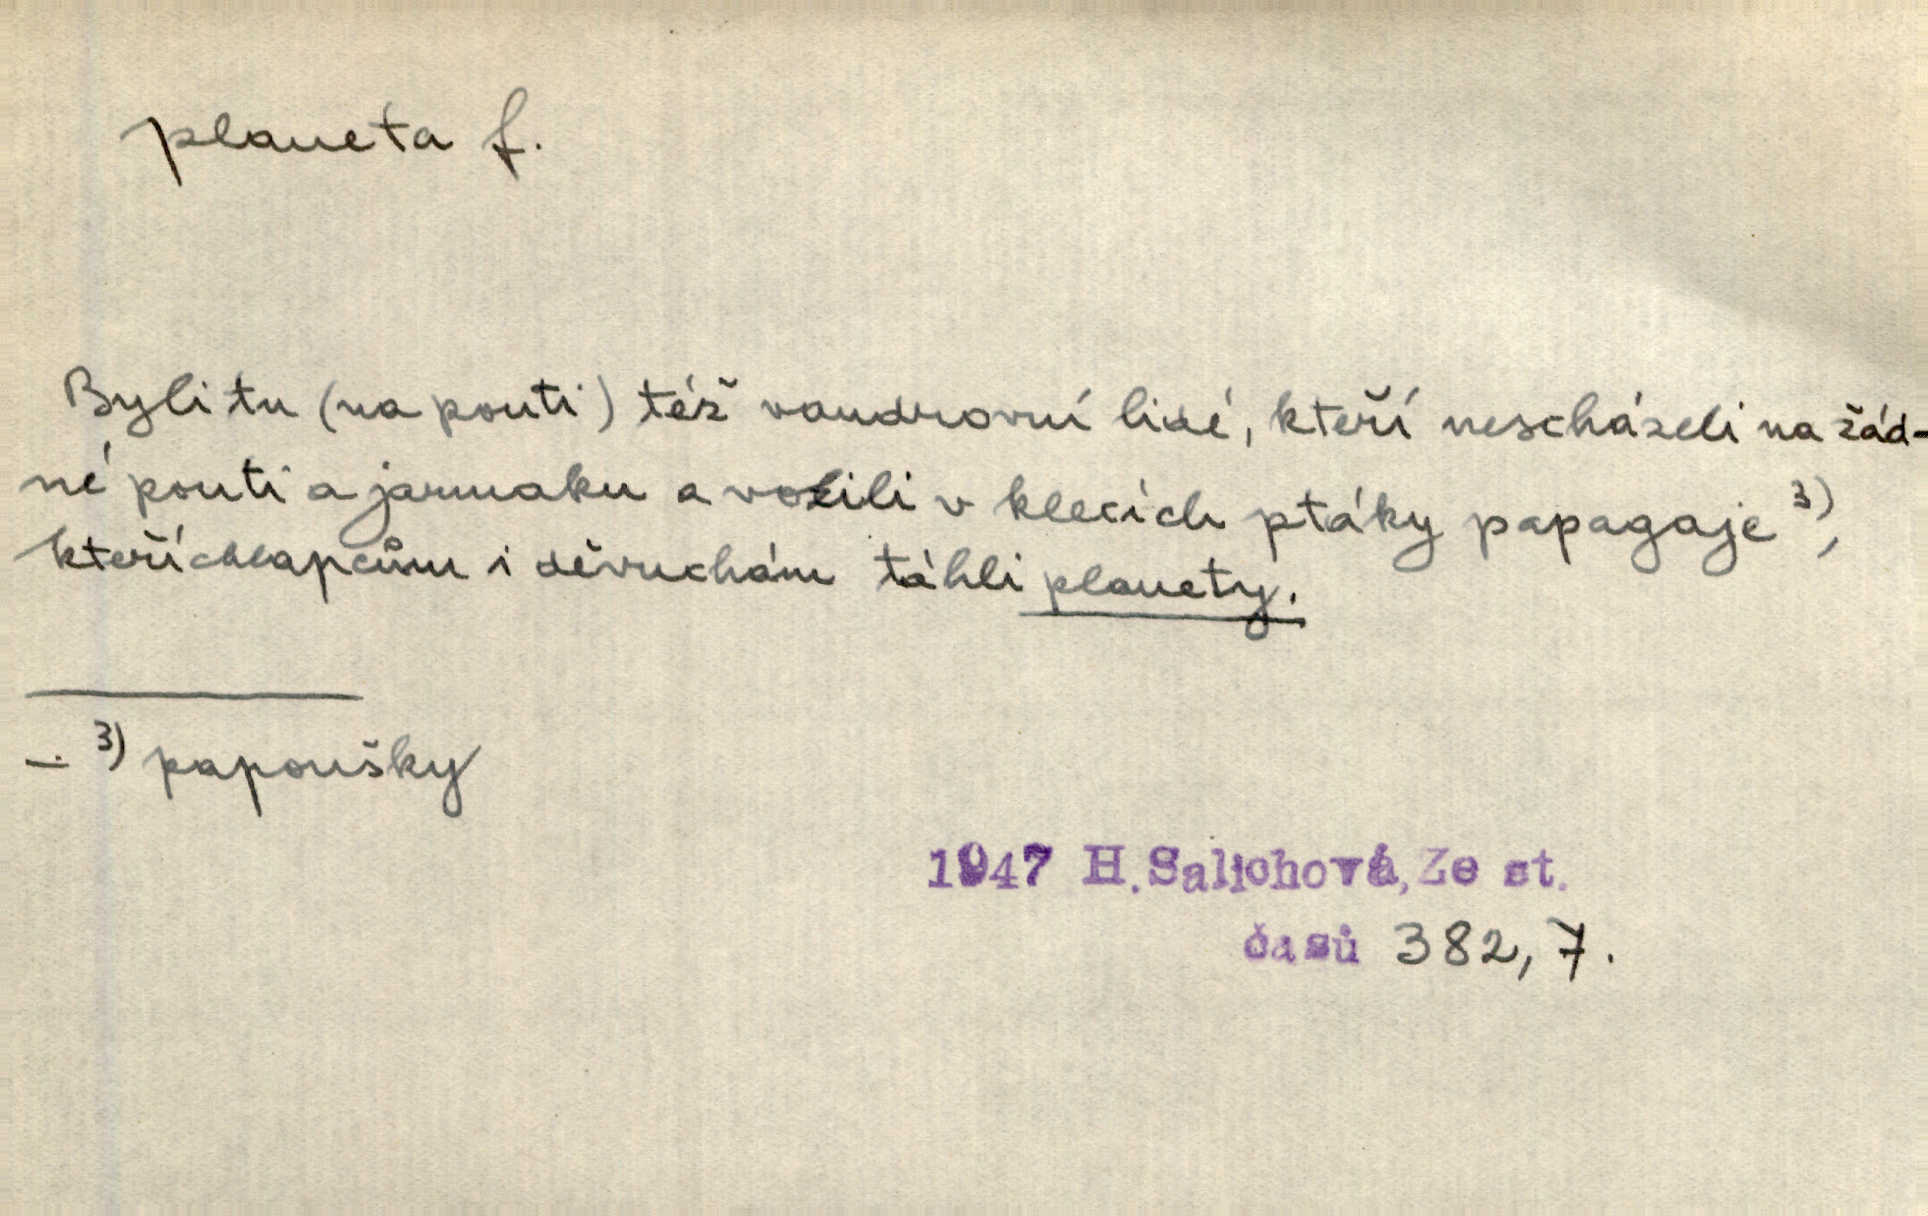 planeta f.
Byli tu (na pouti) též vandrovní lidé, kteří nescházeli na žád-
né pouti a jarmaku a vozili v klecích ptáky papagaje ³⁾,
kteří chlapcům i děvuchám táhli planety.
—. ³⁾ papoušky
1947 H. Salichová, Ze st.
časů 382, 7.